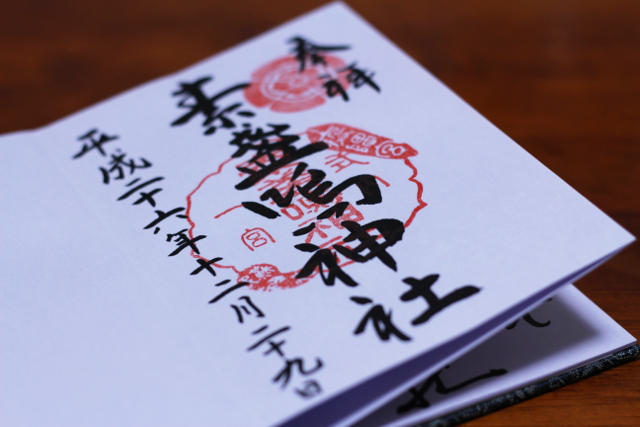 奉拝
素盞嗚神社
平成二十六年十二月二十九日